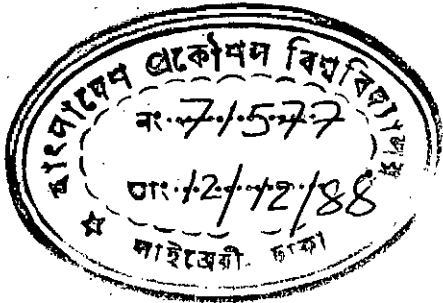 বাংলাদেশ প্রকৌশল বিশ্ববিদ্যালয়
নং..71577
তাং..12/12/88
লাইব্রেরী, ঢাকা